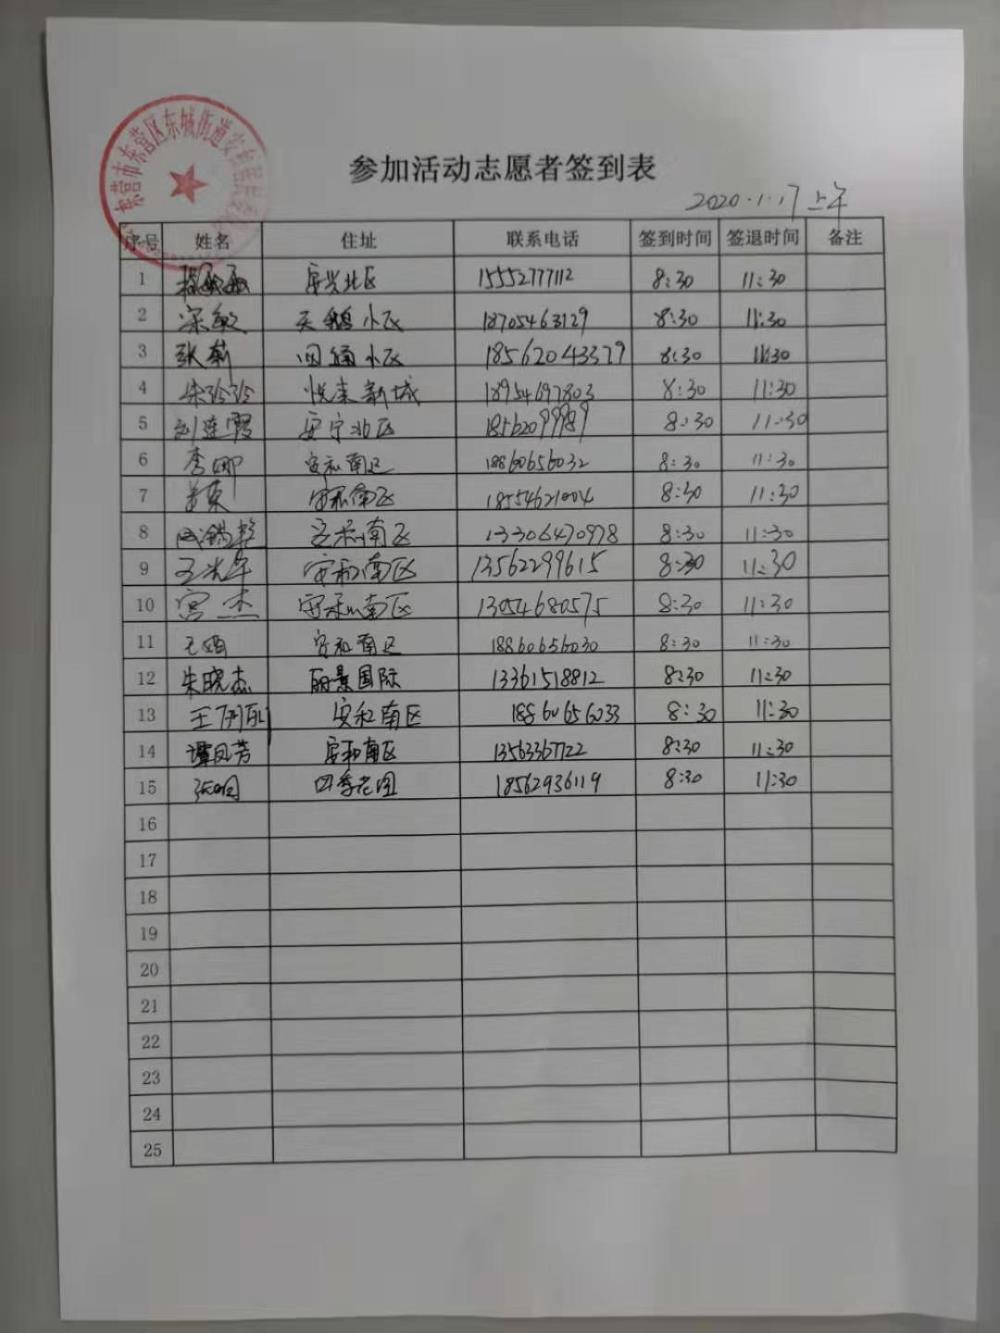 东营市东营区东城街道安
参加活动志愿者签到表
2020.1.17上午
序号 姓名 住址 联系电话 签到时间 签退时间 备注
1 安兴北区 15552777112 8:30 11:30
2 宋敏 天鹅小区 18705463129 8:30 11:30
3 张莉 小区 18562043379 8:30 11:30
4 朱玲玲 悦来新城 18954697803 8:30 11:30
5 刘连霞 安宁北区 18562099989 8:30 11:30
6 李娜 安和南区 18860656032 8:30 11:30
7 安和南区 18554621004 8:30 11:30
8 安和南区 13306470978 8:30 11:30
9 王光军 安和南区 13562299615 8:30 11:30
10 宫杰 安和南区 13054680575 8:30 11:30
11 安和南区 18860656030 8:30 11:30
12 朱晓杰 丽景国际 13361518812 8:30 11:30
13 王 安和南区 18860656033 8:30 11:30
14 谭凤芳 安和南区 13563367722 8:30 11:30
15 张明 四季花园 18562936119 8:30 11:30
16
17
18
19
20
21
22
23
24
25